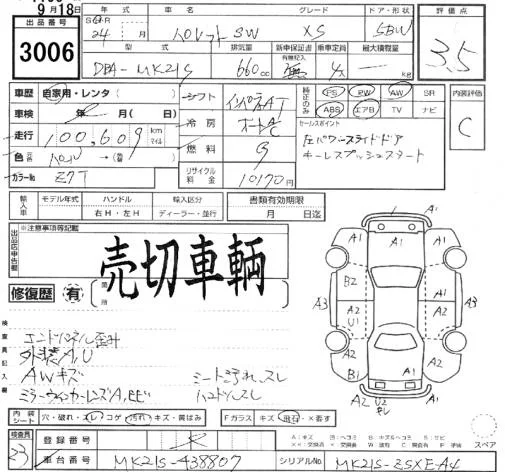 9月18日
出品番号 3006
年式 24 月
車名 パレット SW
グレード XS
ドア・形状 5BW
評価点 3.5
型式 DBA-MK21S
排気量 660cc
新車保証書 有無記入 無
乗車定員 4人
最大積載量 kg
車歴 自家用・レンタ( )
シフト インパネAT
純正のみ PS PW AW SR
ABS エアB TV ナビ
内装評価 C
車検 年 月( 日)
冷房 オートAC
走行 100,609 km マイル
セールスポイント
左パワースライドドア
キーレスプッシュスタート
色 元色 パール →(替 )
燃料 G
カラーNo Z7T
リサイクル料金 10170円
輸入車 モデル年式 ハンドル 右H・左H 輸入区分 ディーラー・並行
書類有効期限 月 日迄
出品店申告欄 ※注意事項等記載
売切車輌
修復歴 有 箇所
検査員記入欄
エンドパネル歪み
外装A,U
AWキズ シート汚れ、スレ
ミラーウィンカーレンズA, ハンドルスレ
A1 A1 A1 A1
B2 A1 A1
A3 A3
A2 U1 A2
A2 A2
B1 A1 A1
A2 U2 A2
内装シート 穴・破れ・スレ・コゲ 汚れ・キズ・黄ばみ
Fガラス キズ・飛石・×要す
スペア
検査員 23
登録番号
車台番号 MK21S-438807
シリアルNo MK21S-ZSXE-A4